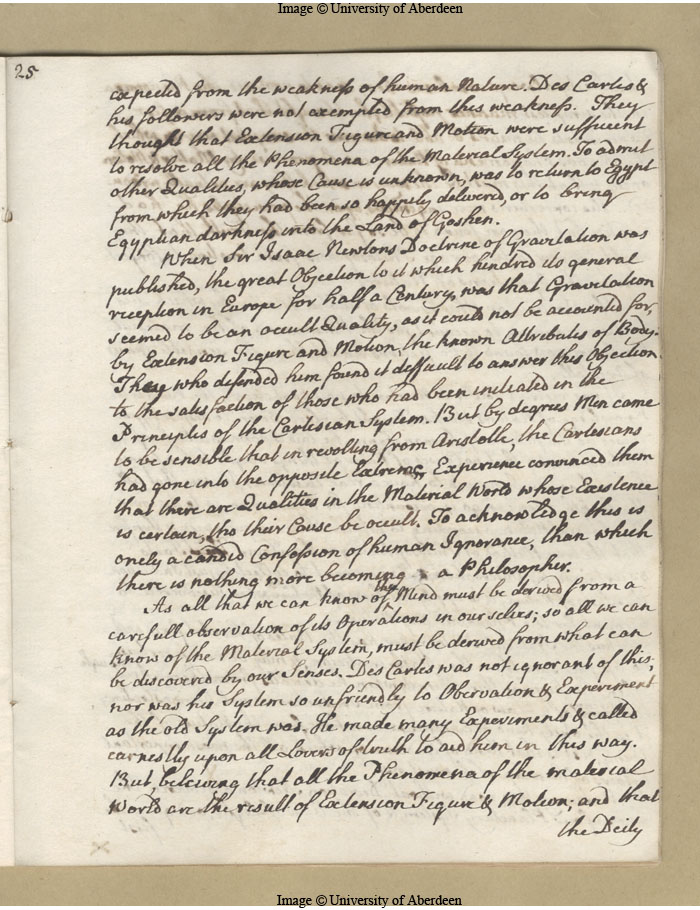 Image © University of Aberdeen
25
expected from the weakness of human Nature. Des Cartes &
his followers were not exempted from this weakness. They
thought that Extension Figure and Motion were sufficient
to resolve all the Phenomena of the Material System. To admit
other Qualities, whose Cause is unknown, was to return to Egypt
from which they had been so happily delivered, or to bring
Egyptian darkness into the Land of Goshen.
When Sir Isaac Newtons Doctrine of Gravitation was
published, the great Objection to it which hindred its general
reception in Europe for half a Century, was that Gravitation
seemed to be an occult Quality, as it could not be accounted for,
by Extension Figure and Motion, the known Attributes of Body.
They who defended him found it difficult to answer this Objection
to the satisfaction of those who had been initiated in the
Principles of the Cartesian System. But by degrees Men came
to be sensible that in revolting from Aristotle, the Cartesians
had gone into the opposite Extreme, Experience convinced them
that there are Qualities in the Material World whose Existence
is certain, tho their Cause be occult. To acknowledge this is
onely a candid Confession of human Ignorance, than which
there is nothing more becoming a Philosopher.
As all that we can know of the Mind must be derived from a
carefull observation of its Operations in our selves; so all we can
know of the Material System, must be derived from what can
be discovered by our Senses. Des Cartes was not ignorant of this;
nor was his System so unfriendly to Observation & Experiment
as the old System was. He made many Experiments & called
earnestly upon all Lovers of truth to aid him in this way.
But, believing that all the Phenomena of the material
World are the result of Extension Figure & Motion; and that
the Deity
Image © University of Aberdeen